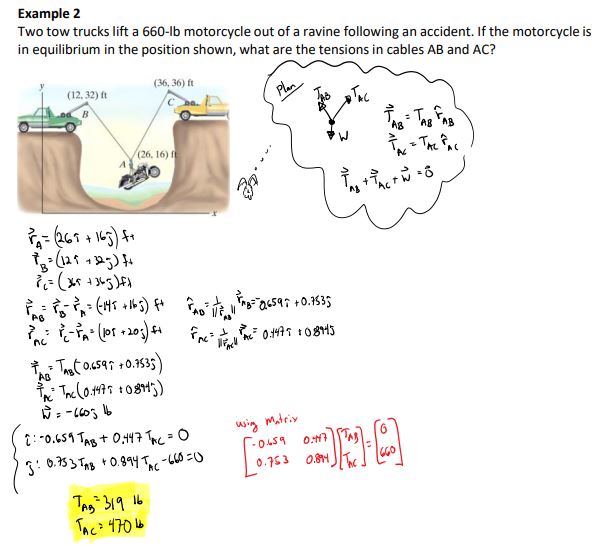 Example 2
Two tow trucks lift a 660-lb motorcycle out of a ravine following an accident. If the motorcycle is
in equilibrium in the position shown, what are the tensions in cables AB and AC?
y
(12, 32) ft
B
(36, 36) ft
C
(26, 16) ft
A
x
Plan
T_AB
T_AC
W
T⃗_AB = T_AB r̂_AB
T⃗_AC = T_AC r̂_AC
T⃗_AB + T⃗_AC + W⃗ = 0⃗
r⃗_A = (26î + 16ĵ) ft
r⃗_B = (12î + 32ĵ) ft
r⃗_C = (36î + 36ĵ) ft
r⃗_AB = r⃗_B - r⃗_A = (-14î + 16ĵ) ft r̂_AB = 1/||r⃗_AB|| r⃗_AB = -0.659î + 0.753ĵ
r⃗_AC = r⃗_C - r⃗_A = (10î + 20ĵ) ft r̂_AC = 1/||r⃗_AC|| r⃗_AC = 0.447î + 0.894ĵ
T⃗_AB = T_AB(-0.659î + 0.753ĵ)
T⃗_AC = T_AC(0.447î + 0.894ĵ)
W⃗ = -660ĵ lb
î: -0.659 T_AB + 0.447 T_AC = 0
ĵ: 0.753 T_AB + 0.894 T_AC - 660 = 0
using Matrix
[-0.659 0.447] [T_AB] = [0]
[0.753 0.894] [T_AC] = [660]
T_AB = 319 lb
T_AC = 470 lb